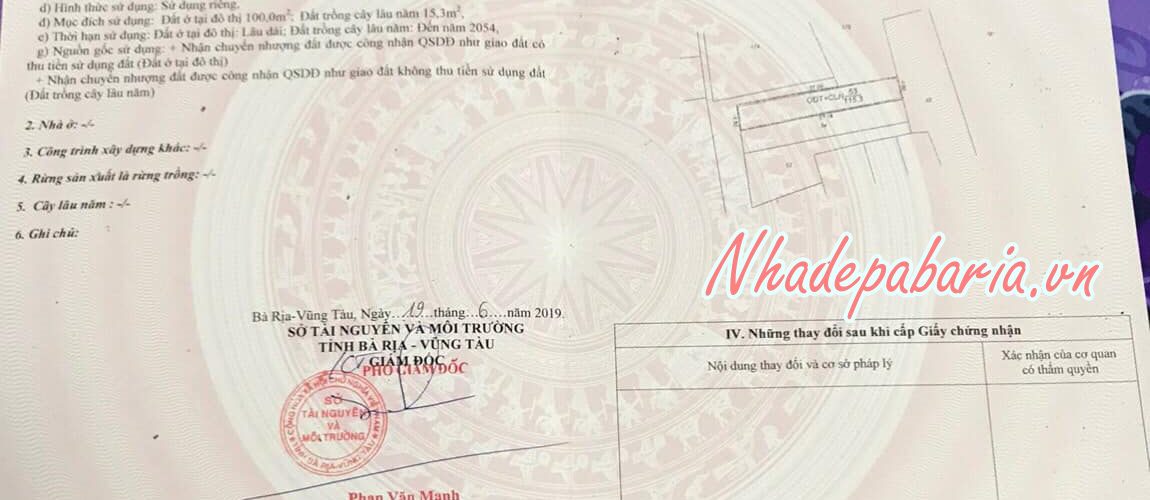 d) Hình thức sử dụng: Sử dụng riêng.
đ) Mục đích sử dụng: Đất ở tại đô thị 100,0m²; Đất trồng cây lâu năm 15,3m²,
e) Thời hạn sử dụng: Đất ở tại đô thị: Lâu dài; Đất trồng cây lâu năm: Đến năm 2054,
g) Nguồn gốc sử dụng: + Nhận chuyển nhượng đất được công nhận QSDĐ như giao đất có
thu tiền sử dụng đất (Đất ở tại đô thị)
+ Nhận chuyển nhượng đất được công nhận QSDĐ như giao đất không thu tiền sử dụng đất
(Đất trồng cây lâu năm)
2. Nhà ở: -/-
3. Công trình xây dựng khác: -/-
4. Rừng sản xuất là rừng trồng: -/-
5. Cây lâu năm : -/-
6. Ghi chú:
ODT+CLN
115.3
Nhadepabaria.vn
Bà Rịa-Vũng Tàu, Ngày...19...tháng...6....năm 2019.
SỞ TÀI NGUYÊN VÀ MÔI TRƯỜNG
TỈNH BÀ RỊA - VŨNG TÀU
KT GIÁM ĐỐC
PHÓ GIÁM ĐỐC
CỘNG HÒA XÃ HỘI CHỦ NGHĨA VIỆT NAM
SỞ
TÀI NGUYÊN
VÀ
MÔI TRƯỜNG
TỈNH BÀ RỊA-VŨNG TÀU
Phan Văn Mạnh
IV. Những thay đổi sau khi cấp Giấy chứng nhận
Nội dung thay đổi và cơ sở pháp lý
Xác nhận của cơ quan
có thẩm quyền